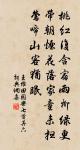 桃紅復含宿雨柳綠更
帶朝煙花落家童未掃
鶯啼山客猶眠
王維田園樂七首其六